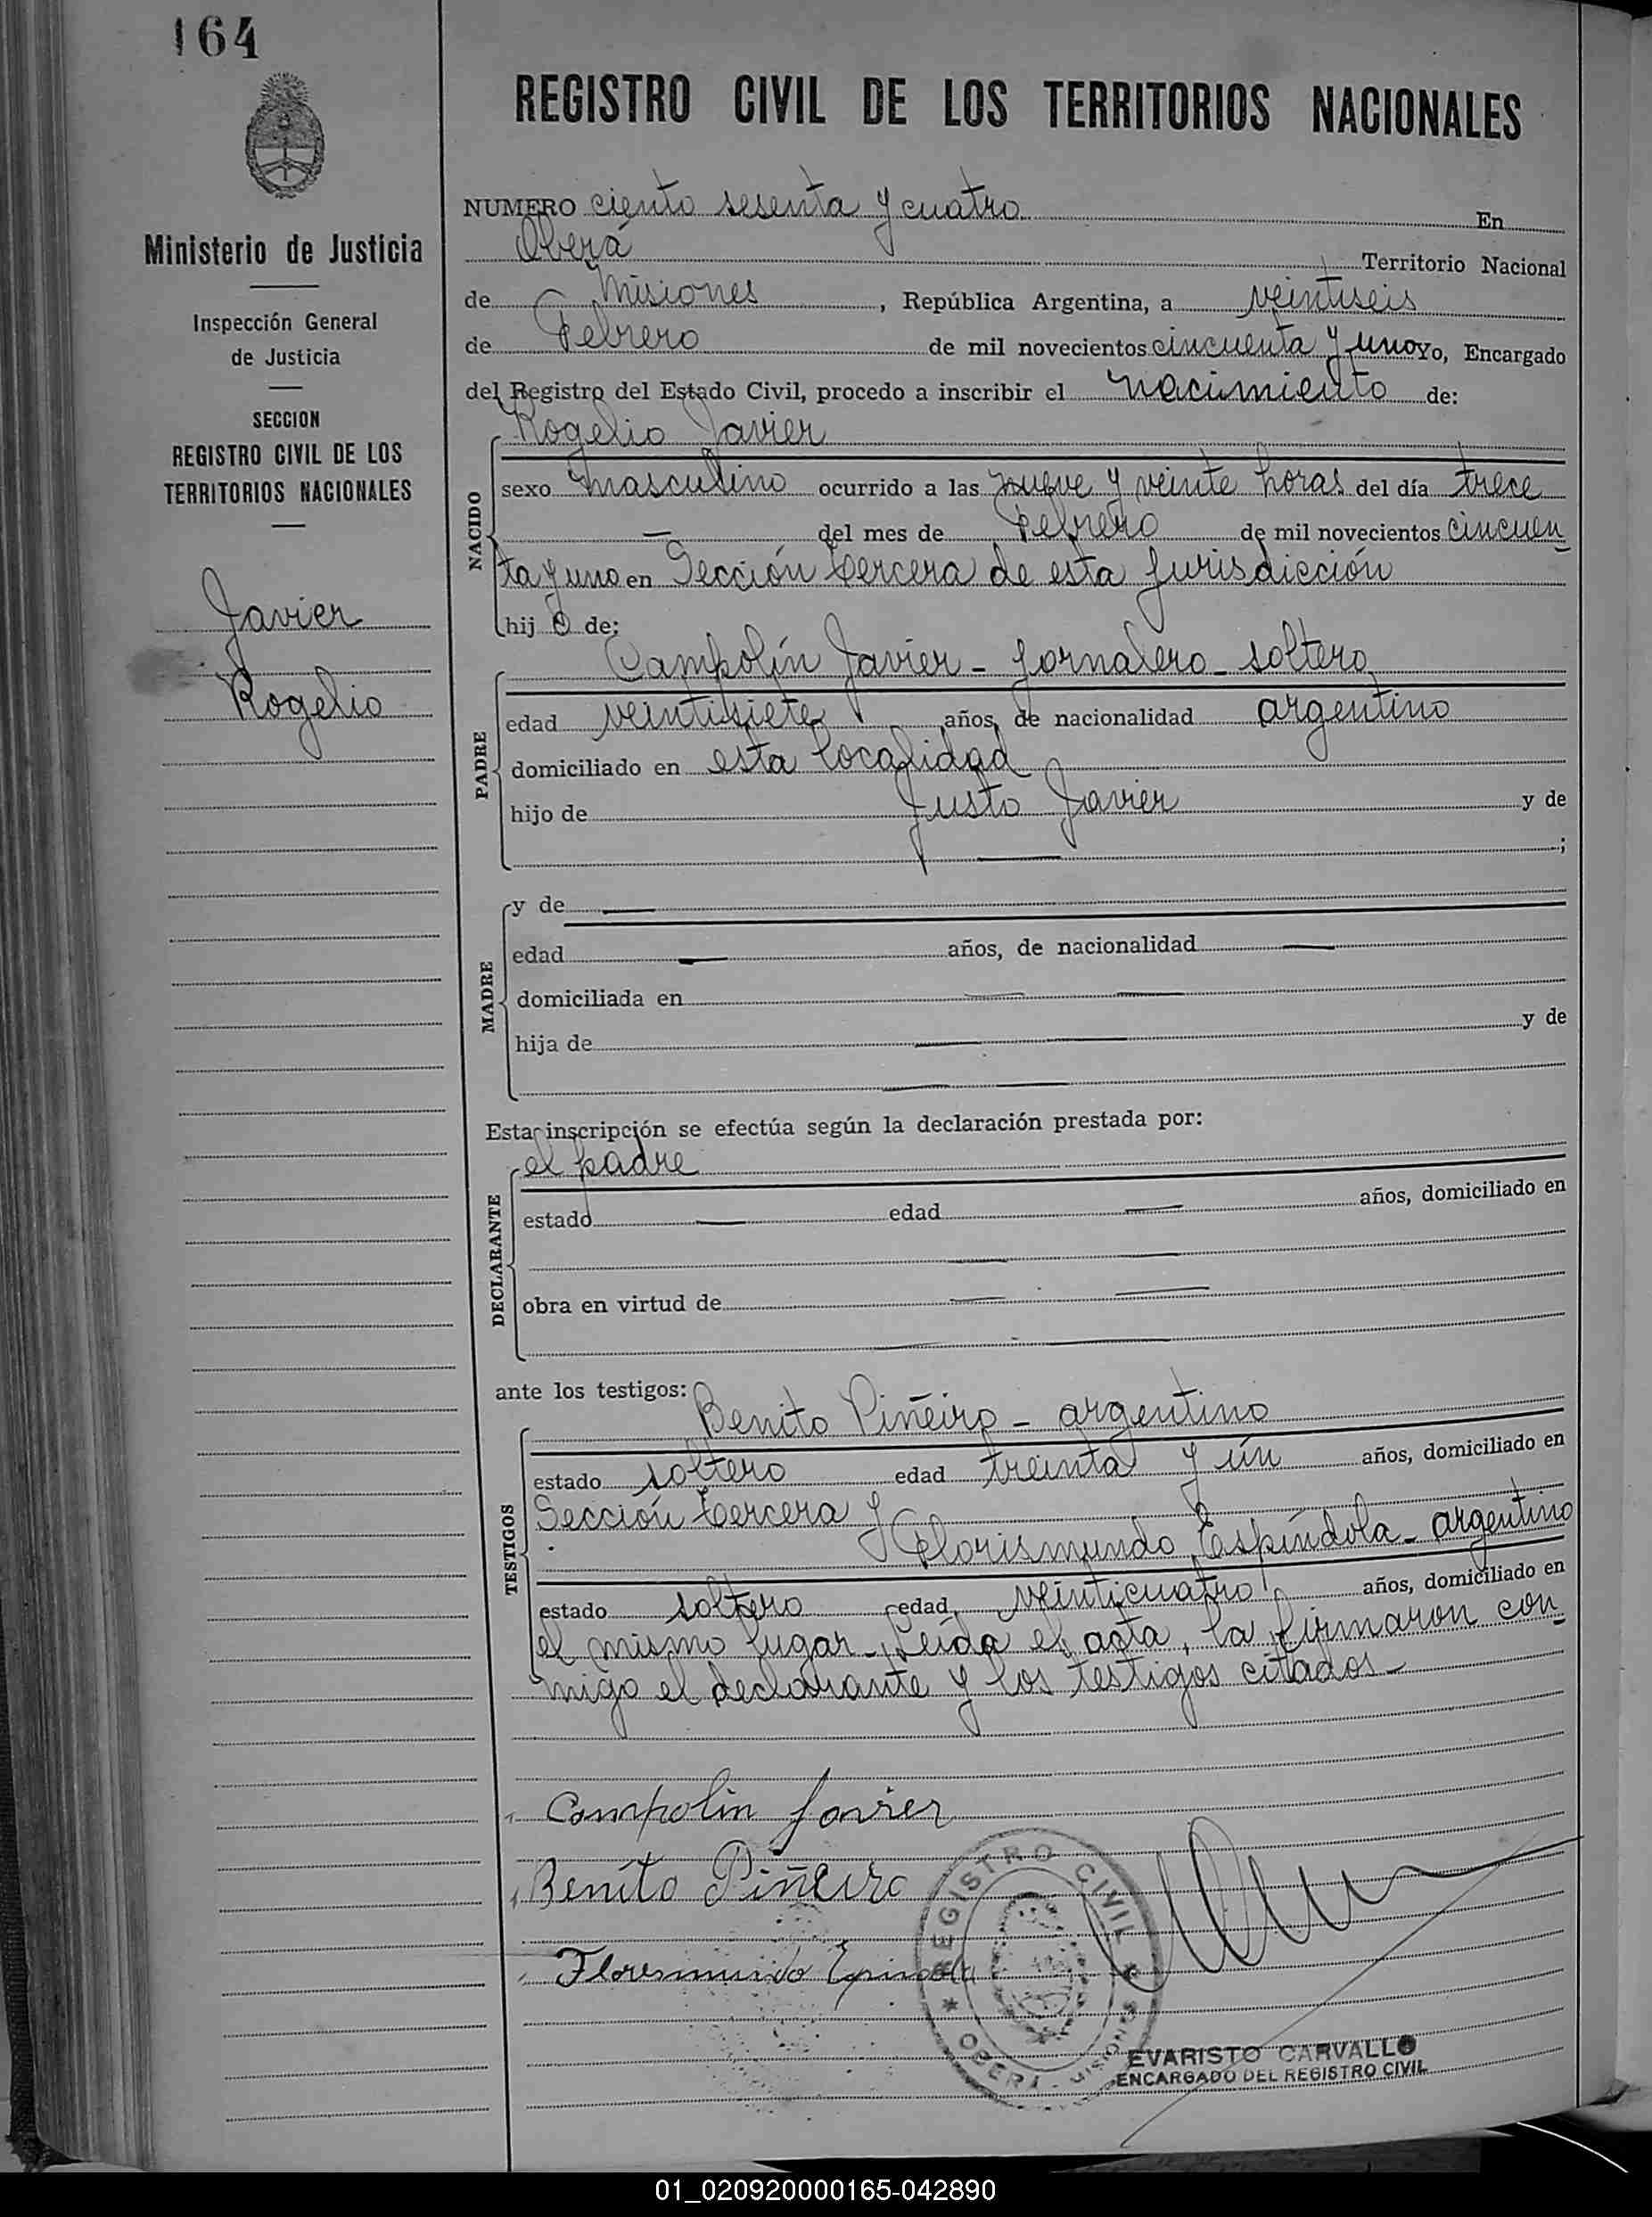 164
REGISTRO CIVIL DE LOS TERRITORIOS NACIONALES
Ministerio de Justicia
Inspección General
de Justicia
SECCION
REGISTRO CIVIL DE LOS
TERRITORIOS NACIONALES
Javier
Rogelio
NUMERO ciento sesenta y cuatro En
Oberá Territorio Nacional
de Misiones, República Argentina, a veintiseis
de Febrero de mil novecientos cincuenta y uno yo, Encargado
del Registro del Estado Civil, procedo a inscribir el nacimiento de:
NACIDO
Rogelio Javier
sexo masculino ocurrido a las nueve y veinte horas del día trece
— del mes de Febrero de mil novecientos cincuen
ta y uno en Sección tercera de esta jurisdicción
hij o de:
PADRE
Campolín Javier - jornalero - soltero
edad veintisiete años, de nacionalidad argentino
domiciliado en esta localidad
hijo de Justo Javier y de
— ;
MADRE
y de —
edad — años, de nacionalidad —
domiciliada en — —
hija de — — y de
— —
Esta inscripción se efectúa según la declaración prestada por:
DECLARANTE
el padre
estado — edad — años, domiciliado en
— —
obra en virtud de — —
— —
ante los testigos:
TESTIGOS
Benito Piñeiro - argentino
estado soltero edad treinta y ún años, domiciliado en
Sección tercera y
Florismundo Espíndola - argentino
estado soltero edad veinticuatro años, domiciliado en
el mismo lugar - Leída el acta, la firmaron con
migo el declarante y los testigos citados -
Campolin Javier
Benito Piñeiro
Floresmundo Espindola
REGISTRO CIVIL
* OBERA - MISIONES
EVARISTO CARVALLO
ENCARGADO DEL REGISTRO CIVIL
01_020920000165-042890